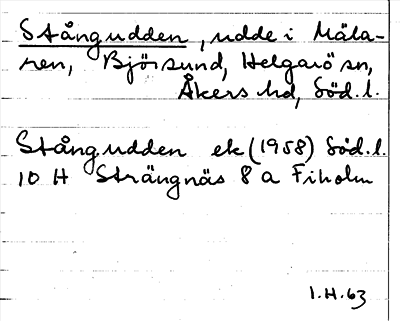 Stångudden, udde i Mäla-
ren, Björsund, Helgarö sn,
Åkers hd, Söd. l.
Stångudden ek (1958) Söd. l.
10 H Strängnäs 8 a Fiholm
I.H. 63